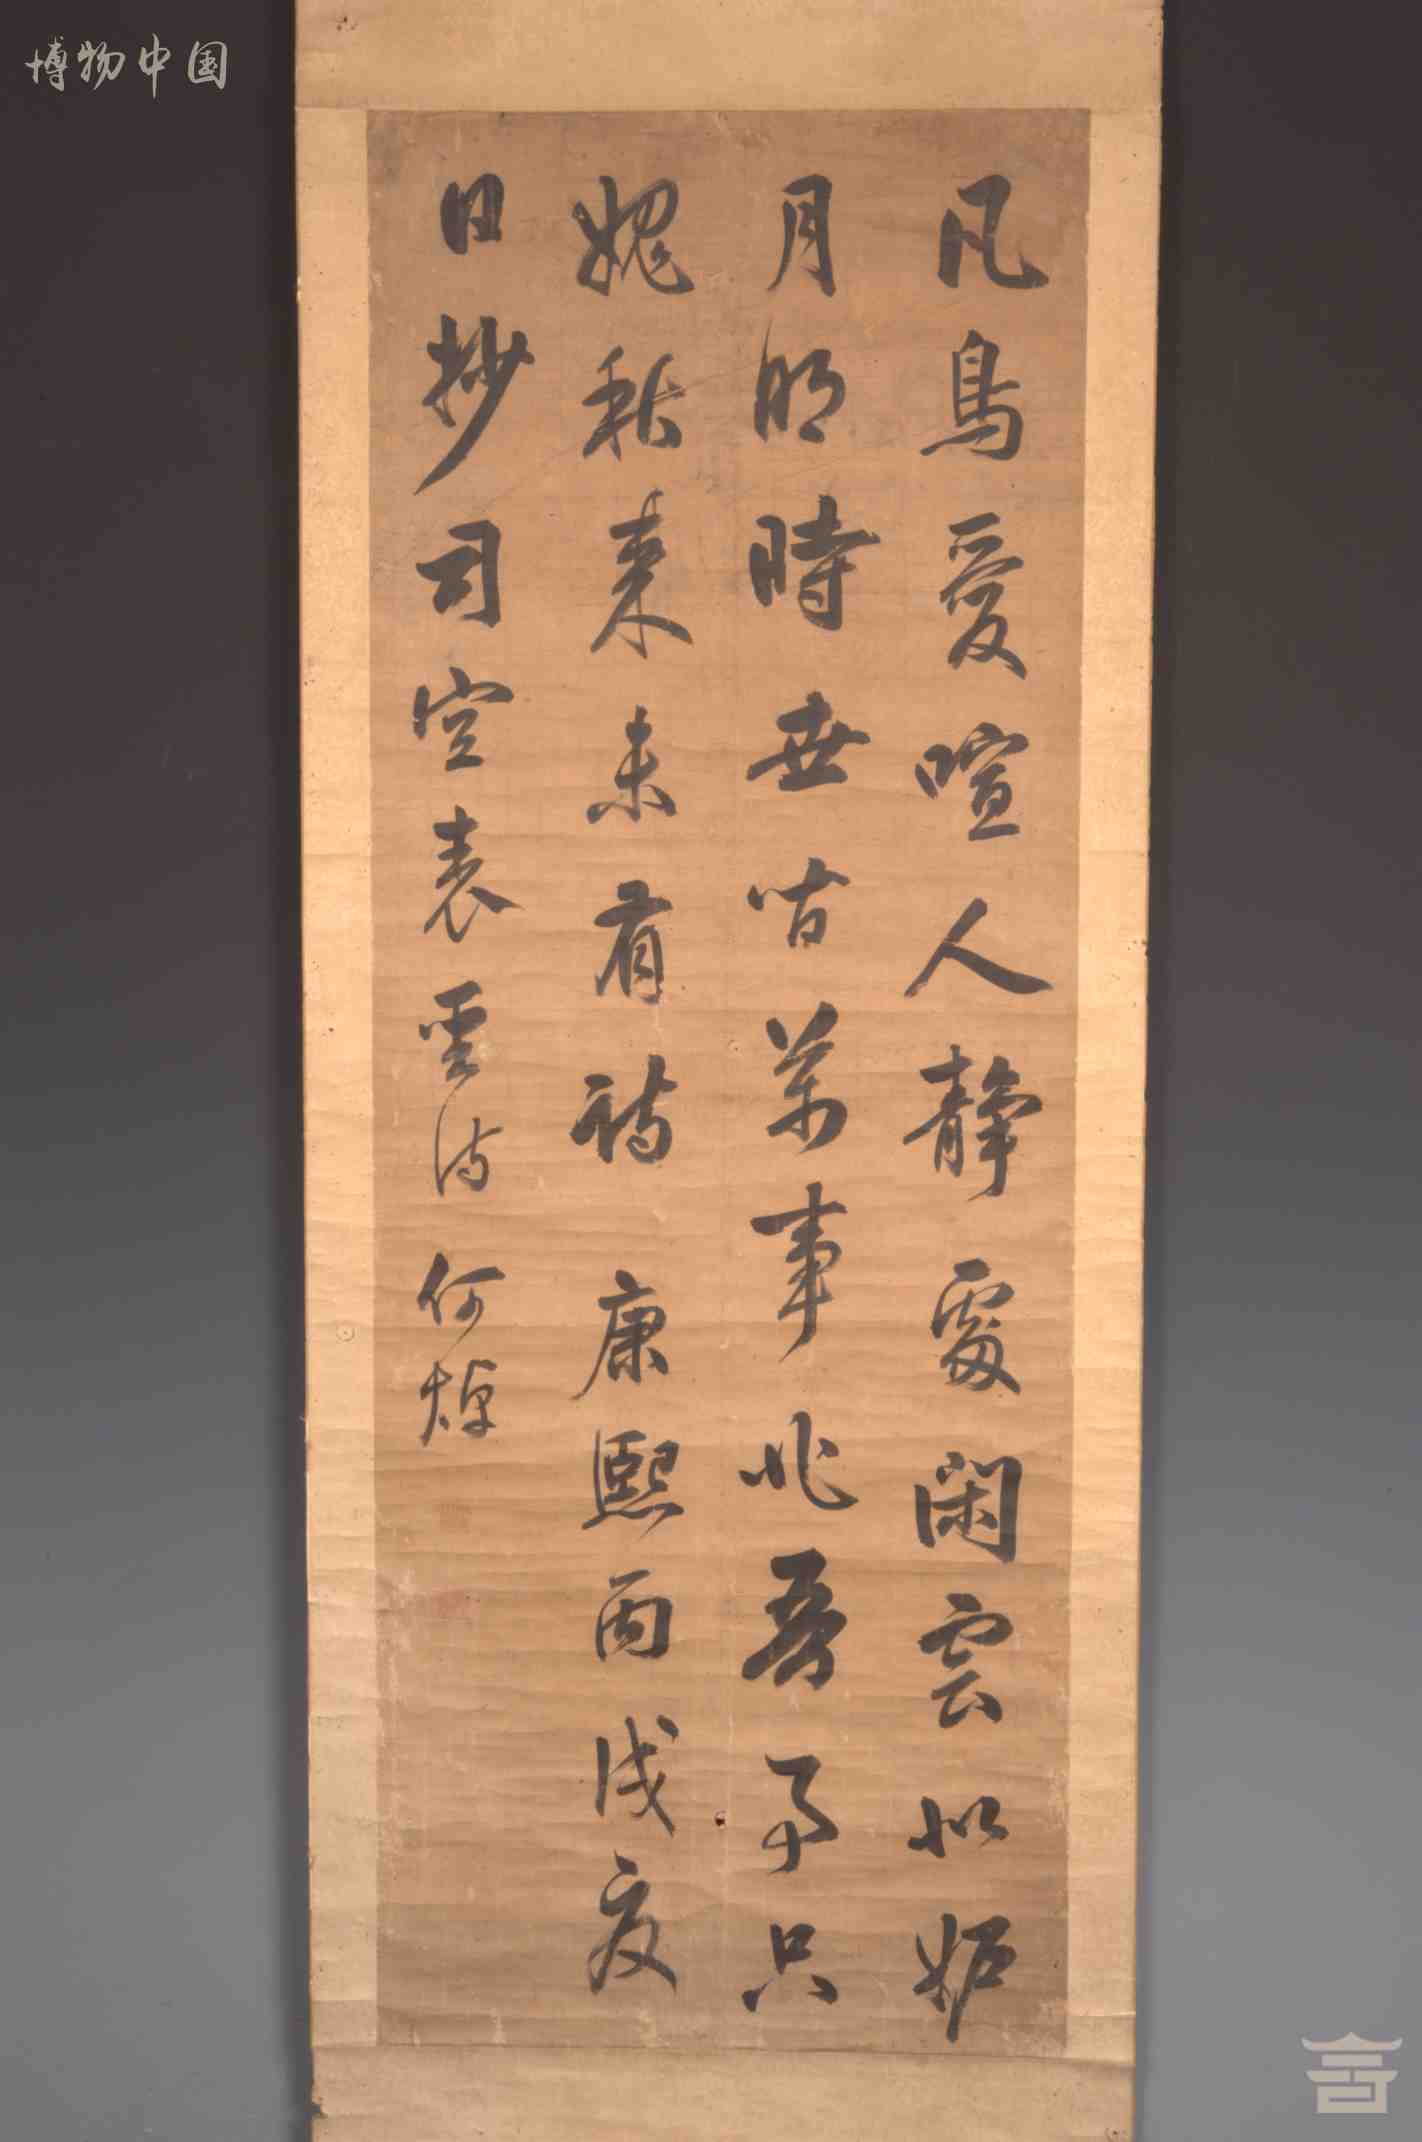 博物中国
凡鳥愛喧人靜處閑雲似妒
月明時世间萬事非吾事只
媿秋來未有詩 康熙丙戌夏
日抄司空表聖詩 何焯